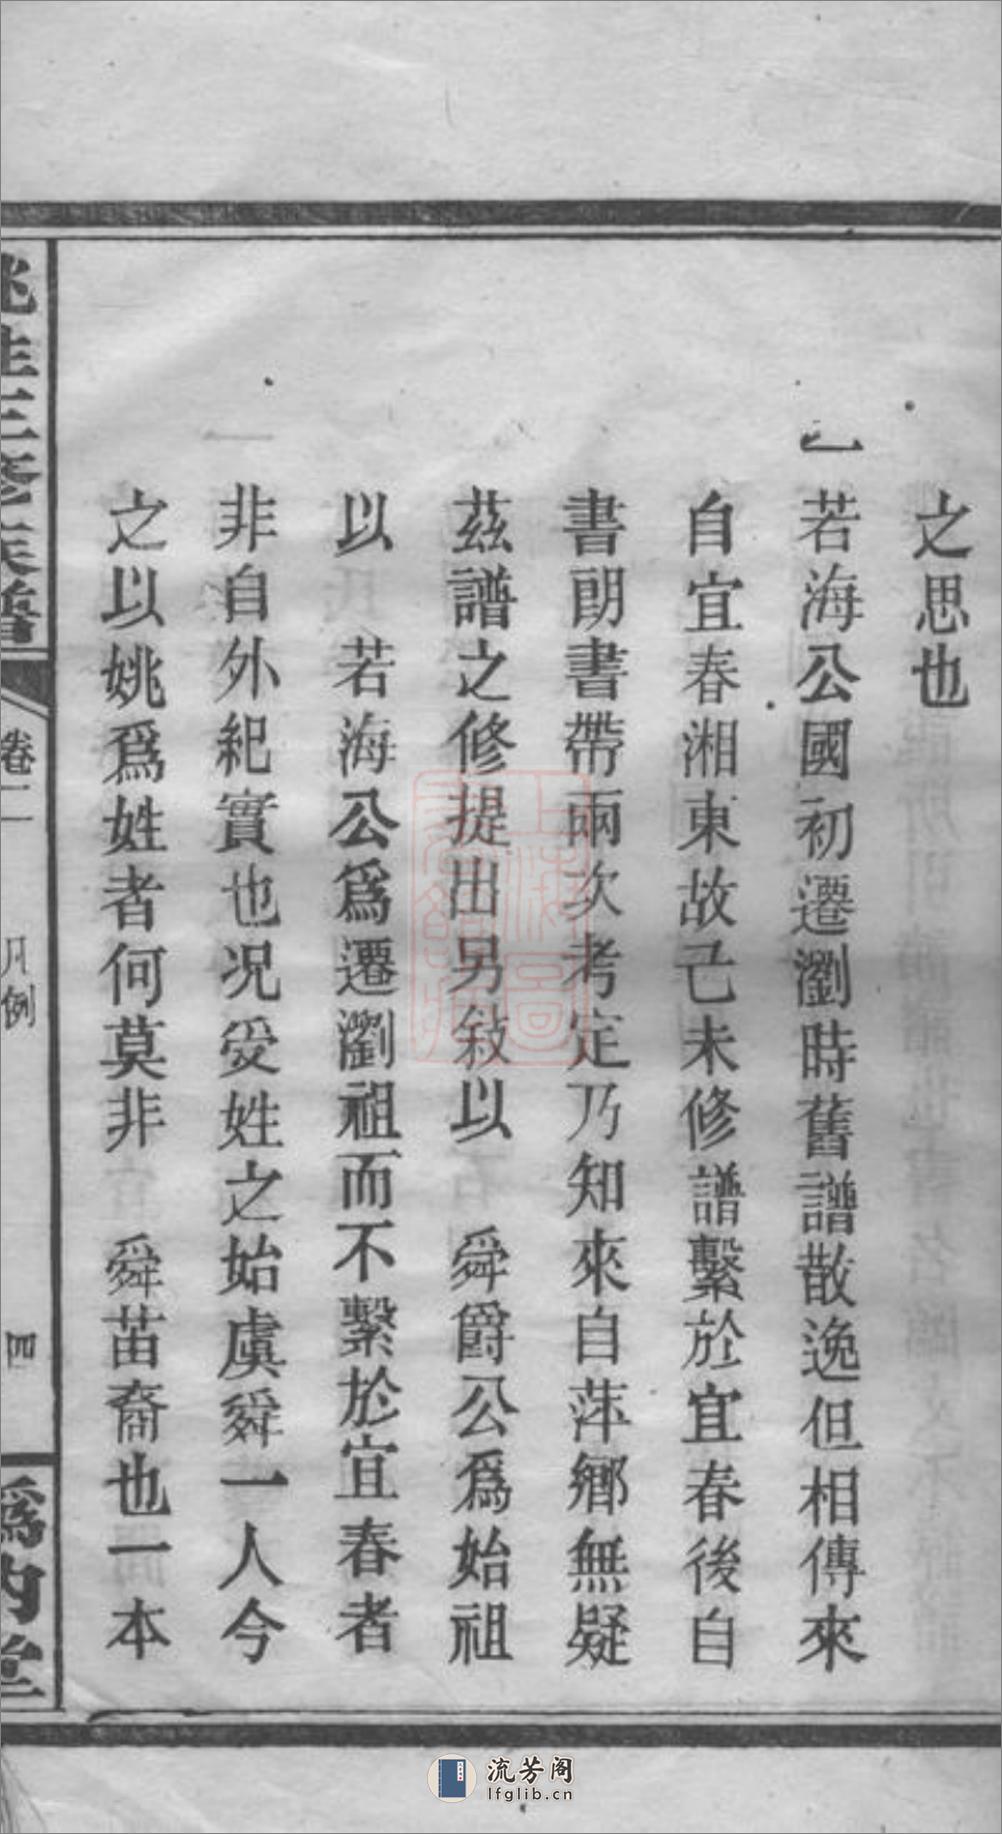 之思也
一若海公國初遷瀏時舊譜散逸但相傳來
自宜春湘東故己未修譜繫於宜春後自
書朗書帶兩次考定乃知來自萍鄉無疑
茲譜之修提出另敍以　舜爵公爲始祖
以　若海公爲遷瀏祖而不繫於宜春者
非自外紀實也况受姓之始虞舜一人今
之以姚爲姓者何莫非　舜苗裔也一本
姚姓三修族譜
卷一
凡例
四
爲汭堂
上海圖書館藏
流芳阁
lfglib.cn